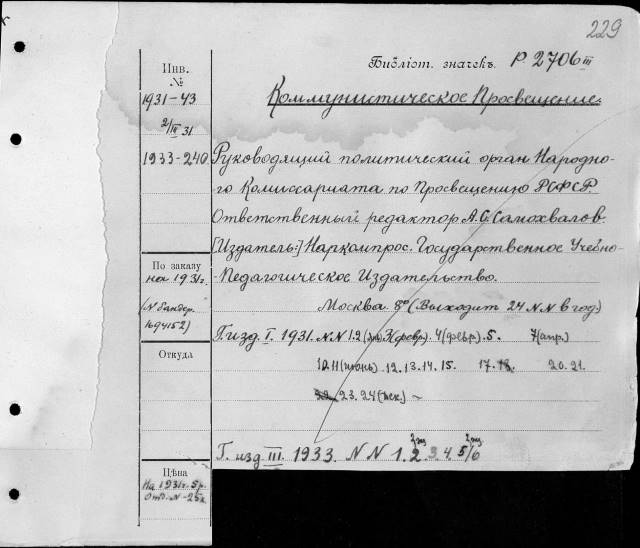 229
Библіот. значекъ P 2706 III
Инв. №
1931-43
2/III 31
1933-240
Коммунистическое Просвещение.
Руководящий политический орган Народно-
го Комиссариата по Просвещению РСФСР.
Ответственный редактор А.С. Самохвалов.
[Издатель:] Наркомпрос. Государственное Учебно-
Педагогическое Издательство.
По заказу
на 1931г.
(N бандер.
169452)
Москва 8° (Выходит 24 NN в год)
Г. изд. I. 1931. NN 1.2 3 (февр.) 4 (февр.) 5. 7 (апр.)
10.11 (июнь) 12.13.14.15. 17.18. 20.21.
22 23.24 (дек.) ~
Откуда
Г. изд. III. 1933. NN 1.2 3.4.5/6
Цѣна
На 1931г. 5р.
Отд. N-25к